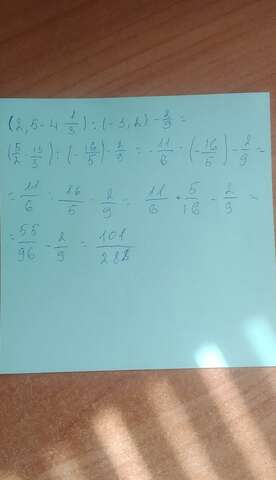 (2,5 - 4 1/3) : (-3,2) - 2/9 =
(5/2 - 13/3) : (- 16/5) - 2/9 = - 11/6 : (- 16/5) - 2/9 =
= 11/6 : 16/5 - 2/9 = 11/6 * 5/16 - 2/9 =
= 55/96 - 2/9 = 101/288